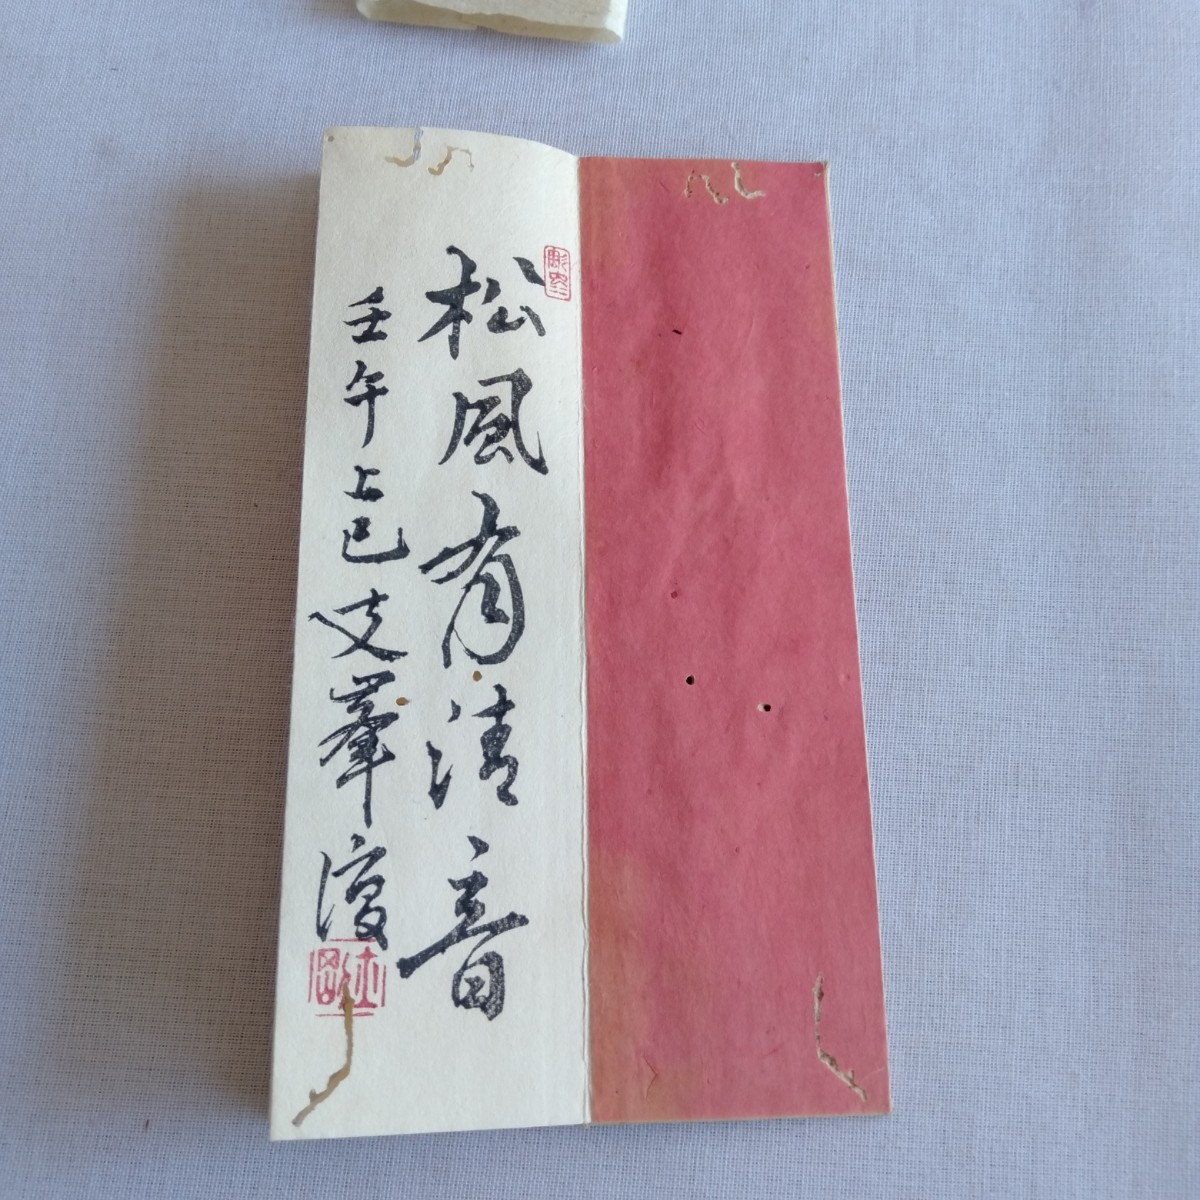 松風有清音
壬午上巳 支峯復